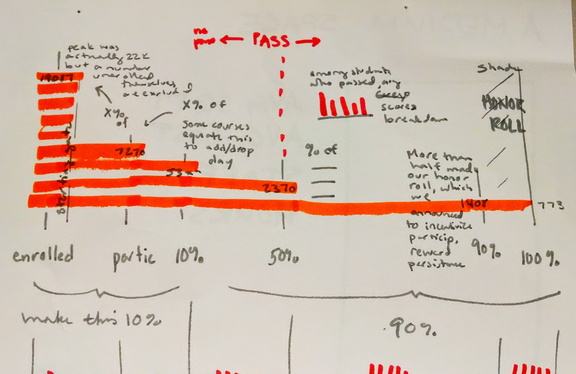 peak was
actually 22k
but a number
unenrolled
themselves
no
pass
← PASS →
X% of
X%
of
some courses
equate this
to add/drop
day
among students
who passed, any
scores
breakdown
% of
Shady
HONOR
ROLL
More than
half made
our honor
roll, which
we
announced
to incentivize
particip,
reward
persistence
7270
2370
1408
773
enrolled
partic
10%
50%
90%
100%
make this 10%
90%